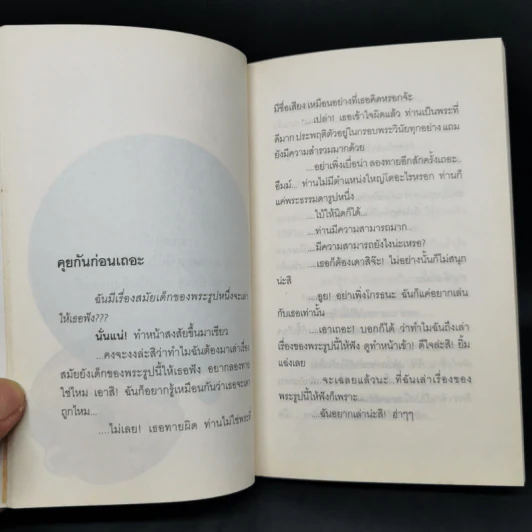 คุยกันก่อนเถอะ
ฉันมีเรื่องสมัยเด็กของพระรูปหนึ่งจะเล่า
ให้เธอฟัง???
นั่นแน่! ทำหน้าสงสัยขึ้นมาเชียว
...คงจะงงล่ะสิว่าทำไมฉันต้องมาเล่าเรื่อง
สมัยยังเด็กของพระรูปนี้ให้เธอฟัง อยากลองทาย
ใช่ไหม เอาสิ! ฉันก็อยากรู้เหมือนกันว่าเธอจะเดา
ถูกไหม...
....ไม่เลย! เธอทายผิด ท่านไม่ใช่พระที่
มีชื่อเสียง เหมือนอย่างที่เธอคิดหรอกจ้ะ
...เปล่า! เธอเข้าใจผิดแล้ว ท่านเป็นพระที่
ดีมาก ประพฤติตัวอยู่ในกรอบพระวินัยทุกอย่าง แถม
ยังมีความสำรวมมากด้วย
...อย่าเพิ่งเบื่อน่า ลองทายอีกสักครั้งเถอะ..
อืมม์... ท่านไม่มีตำแหน่งใหญ่โตอะไรหรอก ท่านก็
แค่พระธรรมดารูปหนึ่ง
...ใบ้ให้นิดก็ได้...
...ท่านมีความสามารถมาก...
...มีความสามารถยังไงน่ะเหรอ?
...เธอก็ต้องเดาสิจ๊ะ! ไม่อย่างนั้นก็ไม่สนุก
น่ะสิ
...อุย! อย่าเพิ่งโกรธนะ ฉันก็แค่อยากเล่น
กับเธอเท่านั้น
...เอาเถอะ! บอกก็ได้ ว่าทำไมฉันถึงเล่า
เรื่องของพระรูปนี้ให้ฟัง ดูทำหน้าเข้า! ดีใจล่ะสิ! ยิ้ม
แฉ่งเลย
...จะเฉลยแล้วนะ...ที่ฉันเล่าเรื่องของ
พระรูปนี้ให้ฟังก็เพราะ...
...ฉันอยากเล่าน่ะสิ! ฮ่าๆๆ